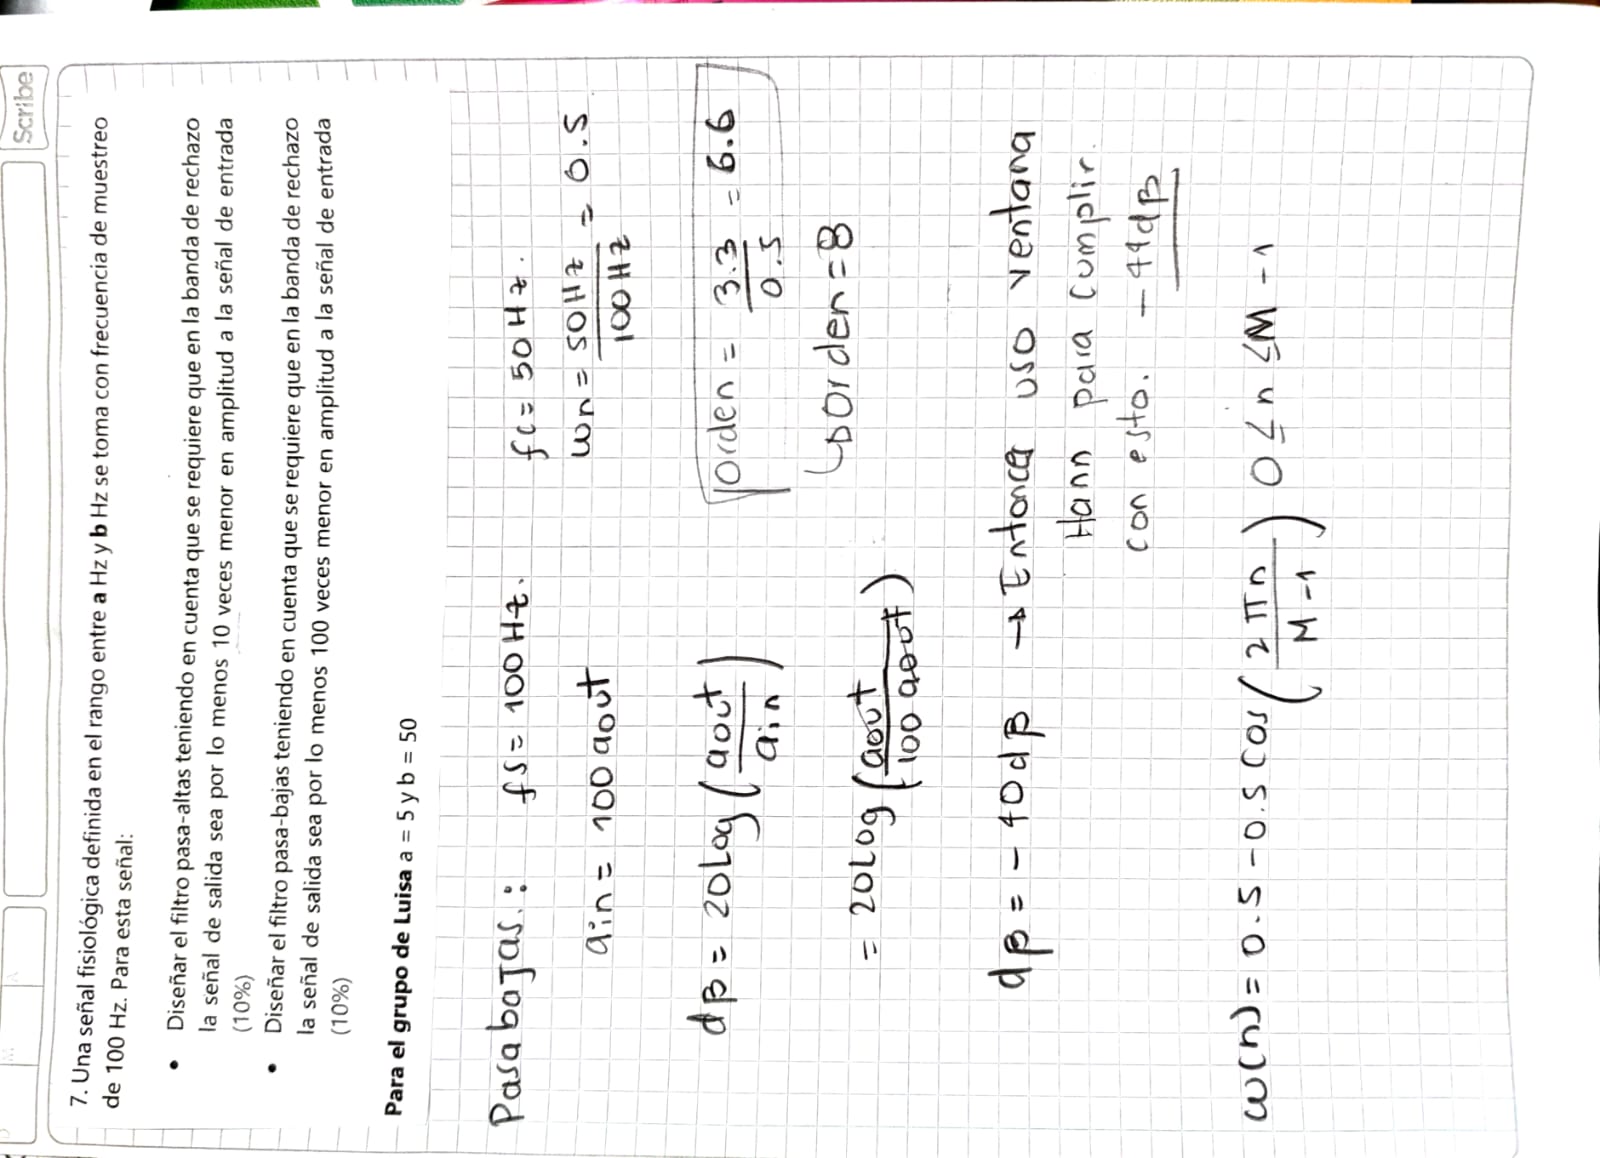 Scribe
7. Una señal fisiológica definida en el rango entre a Hz y b Hz se toma con frecuencia de muestreo
de 100 Hz. Para esta señal:
• Diseñar el filtro pasa-altas teniendo en cuenta que se requiere que en la banda de rechazo
la señal de salida sea por lo menos 10 veces menor en amplitud a la señal de entrada
(10%)
• Diseñar el filtro pasa-bajas teniendo en cuenta que se requiere que en la banda de rechazo
la señal de salida sea por lo menos 100 veces menor en amplitud a la señal de entrada
(10%)
Para el grupo de Luisa a = 5 y b = 50
Pasabajas.: fs = 100Hz. fc = 50Hz.
ain = 100 aout wn = 50Hz / 100Hz = 0.5
dB = 20Log(aout / ain) orden = 3.3 / 0.5 = 6.6
= 20Log(aout / 100 aout) ↳orden = 8
dB = -40dB → Entonces uso ventana
Hann para cumplir.
con esto. -44dB
w(n) = 0.5 - 0.5 cos(2πn / M-1) 0 ≤ n ≤ M-1